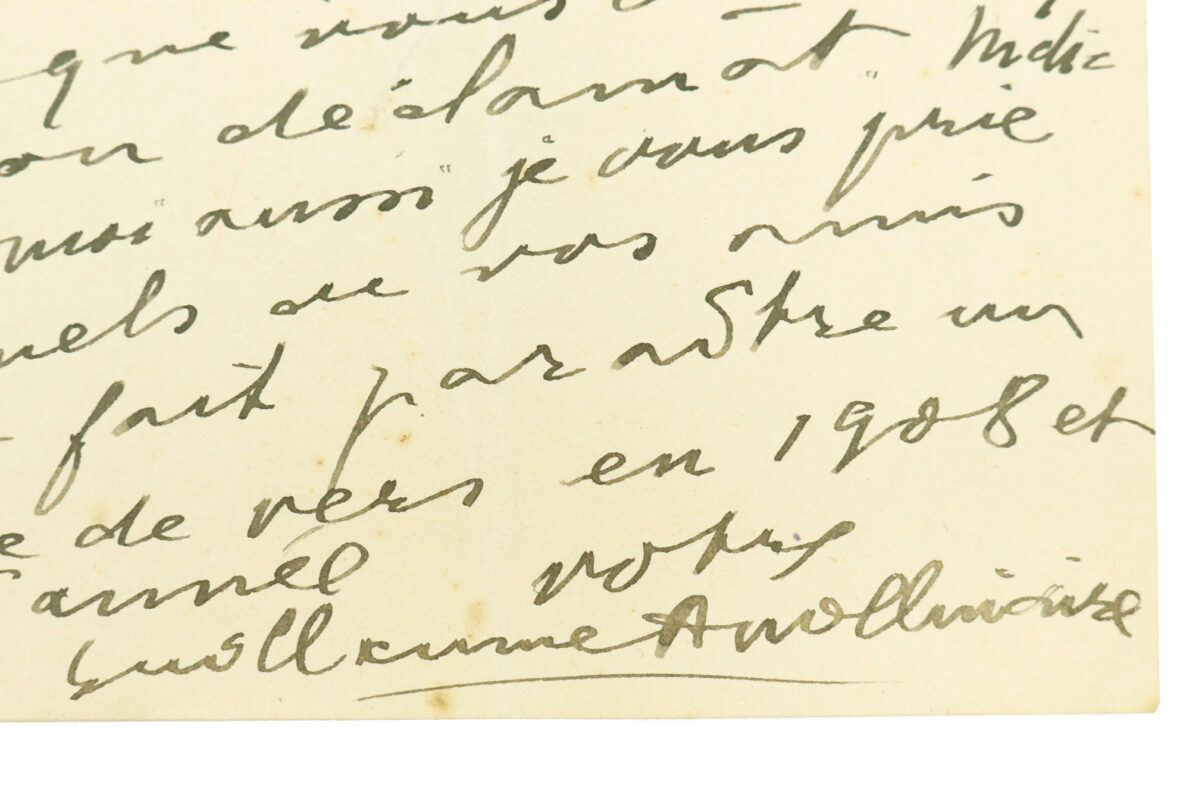 que vous
on déclamât. Indi
moi aussi je vous prie
uels de vos amis
fait paraître un
e de vers en 1908 et
année votre
Guillaume Apollinaire